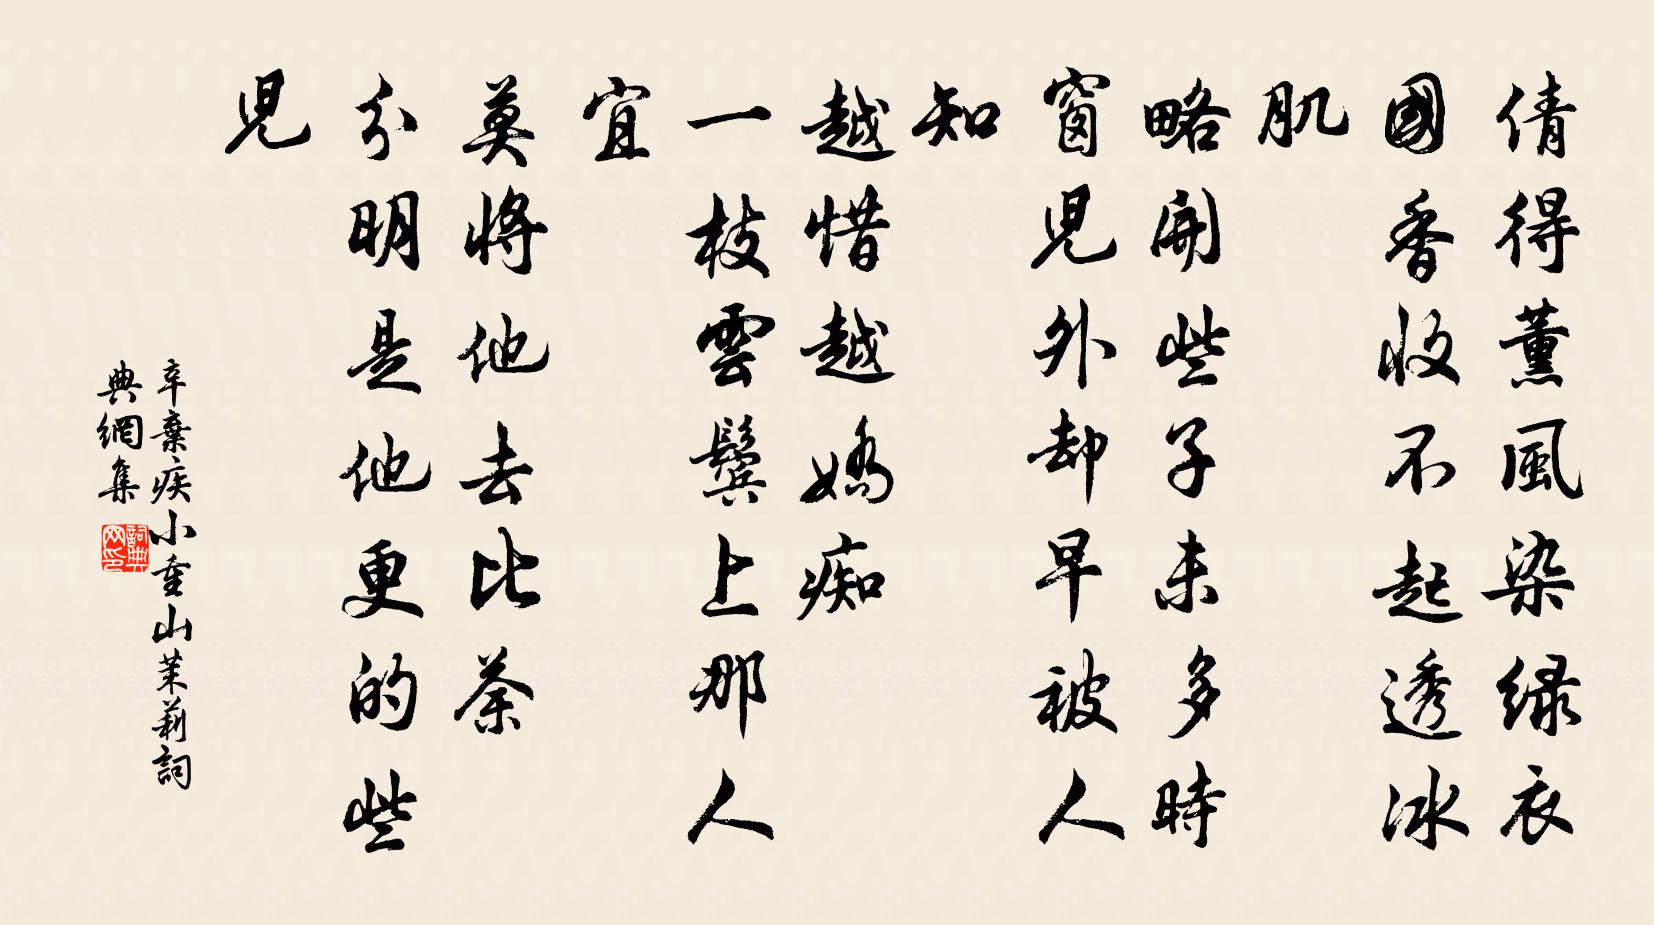 倩得薰風染綠衣
國香收不起透冰
肌
略開些子未多時
窗兒外却早被人
知
越惜越嬌痴
一枝雲鬢上那人
宜
莫將他去比荼
分明是他更的些
兒
辛棄疾小重山茉莉詞
典網集
詞典網印